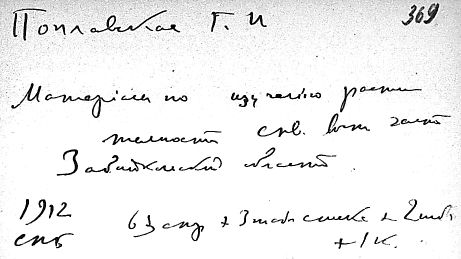 Поплавская Г. И
369
Матерiалы по изучению расти
тельности сев. вост части
Забайкальской области.
1912
63 стр + 3 таб
спб
+ 1 к.